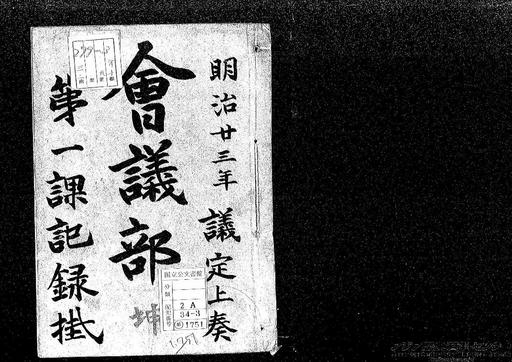 明治廿三年 議定上奏
會議部
坤
第一課記録掛
国立公文書館
分類
配架番号
2 A
34-3
1751